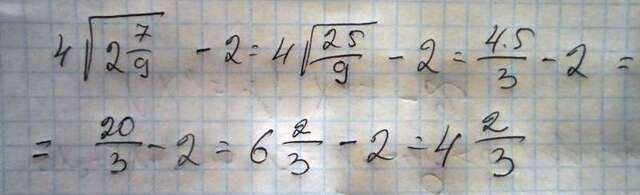 4√(2 7/9) - 2 = 4√(25/9) - 2 = 4·5/3 - 2 =
= 20/3 - 2 = 6 2/3 - 2 = 4 2/3